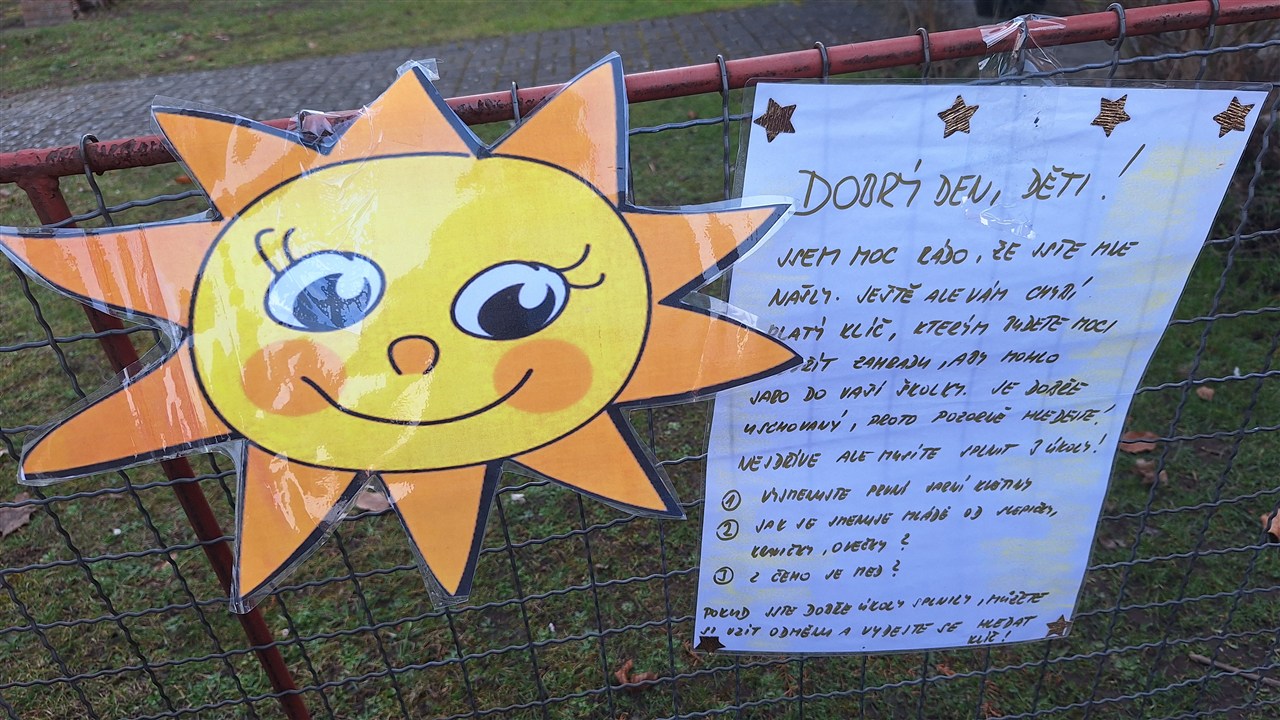 DOBRÝ DEN, DĚTI!
JSEM MOC RÁDO, ŽE JSTE MLE
NAŠLY. JEŠTĚ ALE VÁM CHYBÍ
ZLATÝ KLÍČ, KTERÝM BUDETE MOCI
ZAHRADU, ABY MOHLO
JARO DO VAŠÍ ŠKOLKY. JE DOBŘE
USCHOVANÝ, PROTO POZORNĚ HLEDEJTE!
NEJDŘÍVE ALE MUSÍTE SPLNIT 3 ÚKOLY!
1 VYJMENUJTE PRVNÍ JARNÍ KVĚTINY
2 JAK SE JMENUJE MLÁDĚ OD SLEPIČKY,
KRAVIČKY, OVEČKY?
3 Z ČEHO JE MED?
POKUD JSTE DOBŘE ÚKOLY SPLNILY, MŮŽETE
SI VZÍT ODMĚNU A VYDEJTE SE HLEDAT
KLÍČ!